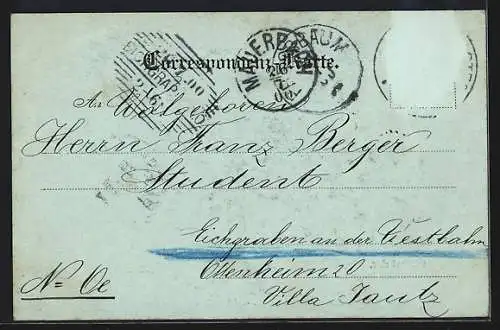 Correspondenz-Karte.
MAUERBACH
BAUM
An Wolgeboren
Herrn Franz Berger
Student
Eichgraben an der Westbahn
Ottenheim 20
N. Oe
Villa Jautz